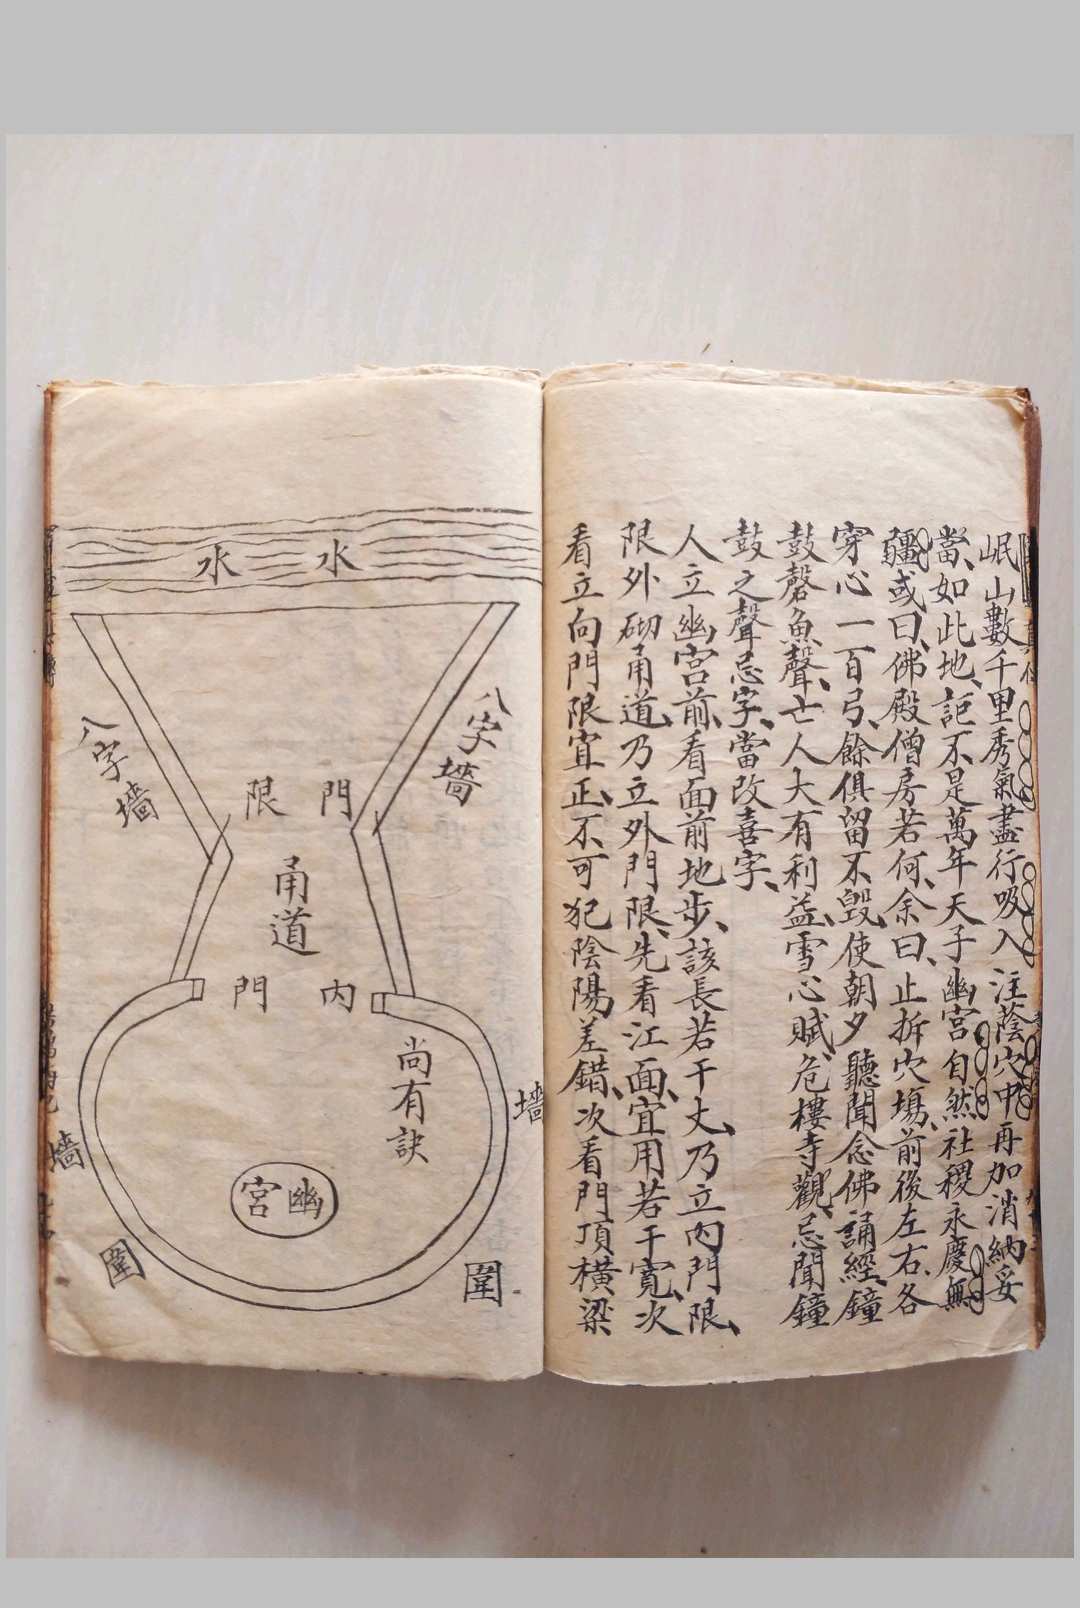 岷山數千里秀氣盡行吸入注蔭穴中再加消納妥
當、如此地、詎不是萬年天子幽宮自然社稷永慶無
疆或曰、佛殿僧房若何、余曰、止拆穴塲、前後左右、各
穿心一百弓、餘俱留不毀、使朝夕聽聞念佛誦經、鐘
鼓磬魚聲、亡人大有利益、雪心賦、危樓寺觀、忌聞鐘
鼓之聲、忌字、當改喜字、
人立幽宮前、看面前地步、該長若干丈、乃立內門限、
限外砌甬道、乃立外門限、先看江面、宜用若干寬、次
看立向門限宜正、不可犯陰陽差錯、次看門頂橫梁
水 水
八字墻
八字墻
門限
甬道
內門
尚有訣
幽宮
墻
墻
圍
圍